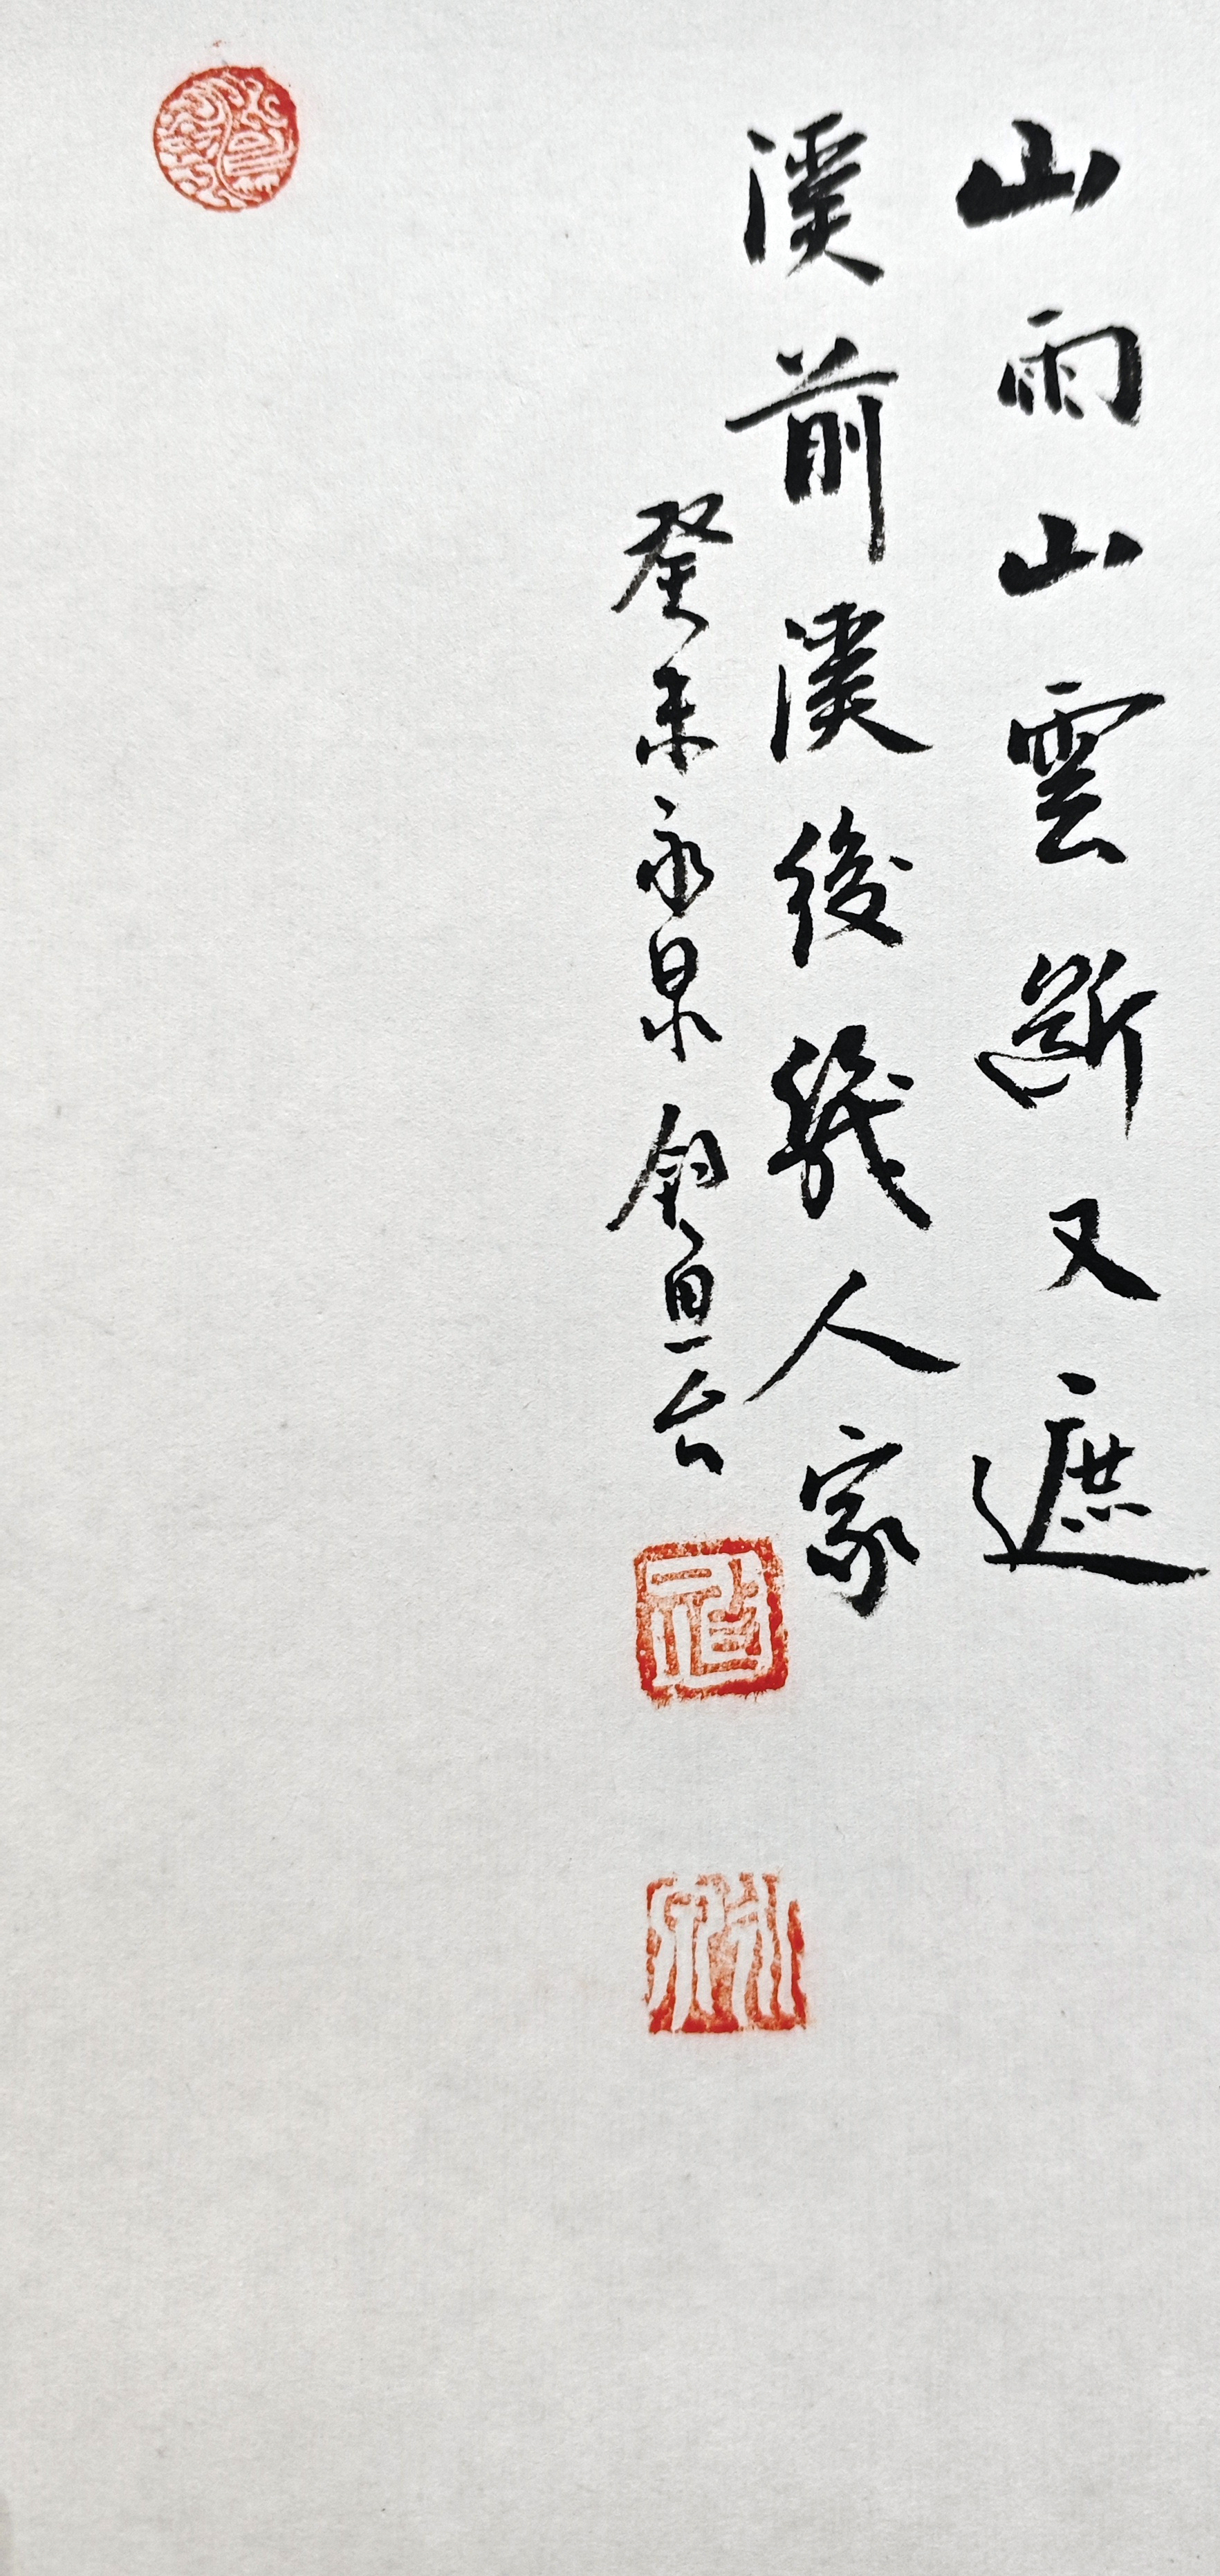 山雨山雲斷又遮
溪前溪後幾人家
癸未永泉